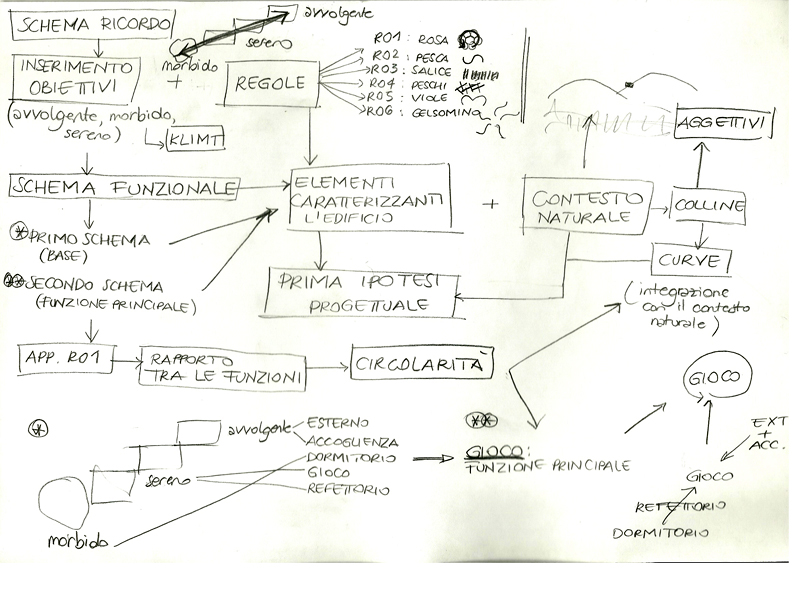 SCHEMA RICORDO
avvolgente
sereno
morbido
+
INSERIMENTO
OBIETTIVI
(avvolgente, morbido,
sereno)
KLIMT
REGOLE
R01 : ROSA
R02 : PESCA
R03 : SALICE
R04 : PESCHI
R05 : VIOLE
R06 : GELSOMINO
AGGETTIVI
SCHEMA FUNZIONALE
ELEMENTI
CARATTERIZZANTI
L'EDIFICIO
+
CONTESTO
NATURALE
COLLINE
CURVE
(integrazione
con il contesto
naturale)
* PRIMO SCHEMA
(BASE)
** SECONDO SCHEMA
(FUNZIONE PRINCIPALE)
PRIMA IPOTESI
PROGETTUALE
APP. R01
RAPPORTO
TRA LE FUNZIONI
CIRCOLARITÀ
*
avvolgente
ESTERNO
ACCOGLIENZA
DORMITORIO
sereno
GIOCO
REFETTORIO
morbido
**
GIOCO:
FUNZIONE PRINCIPALE
GIOCO
EXT
+
ACC.
GIOCO
REFETTORIO
DORMITORIO